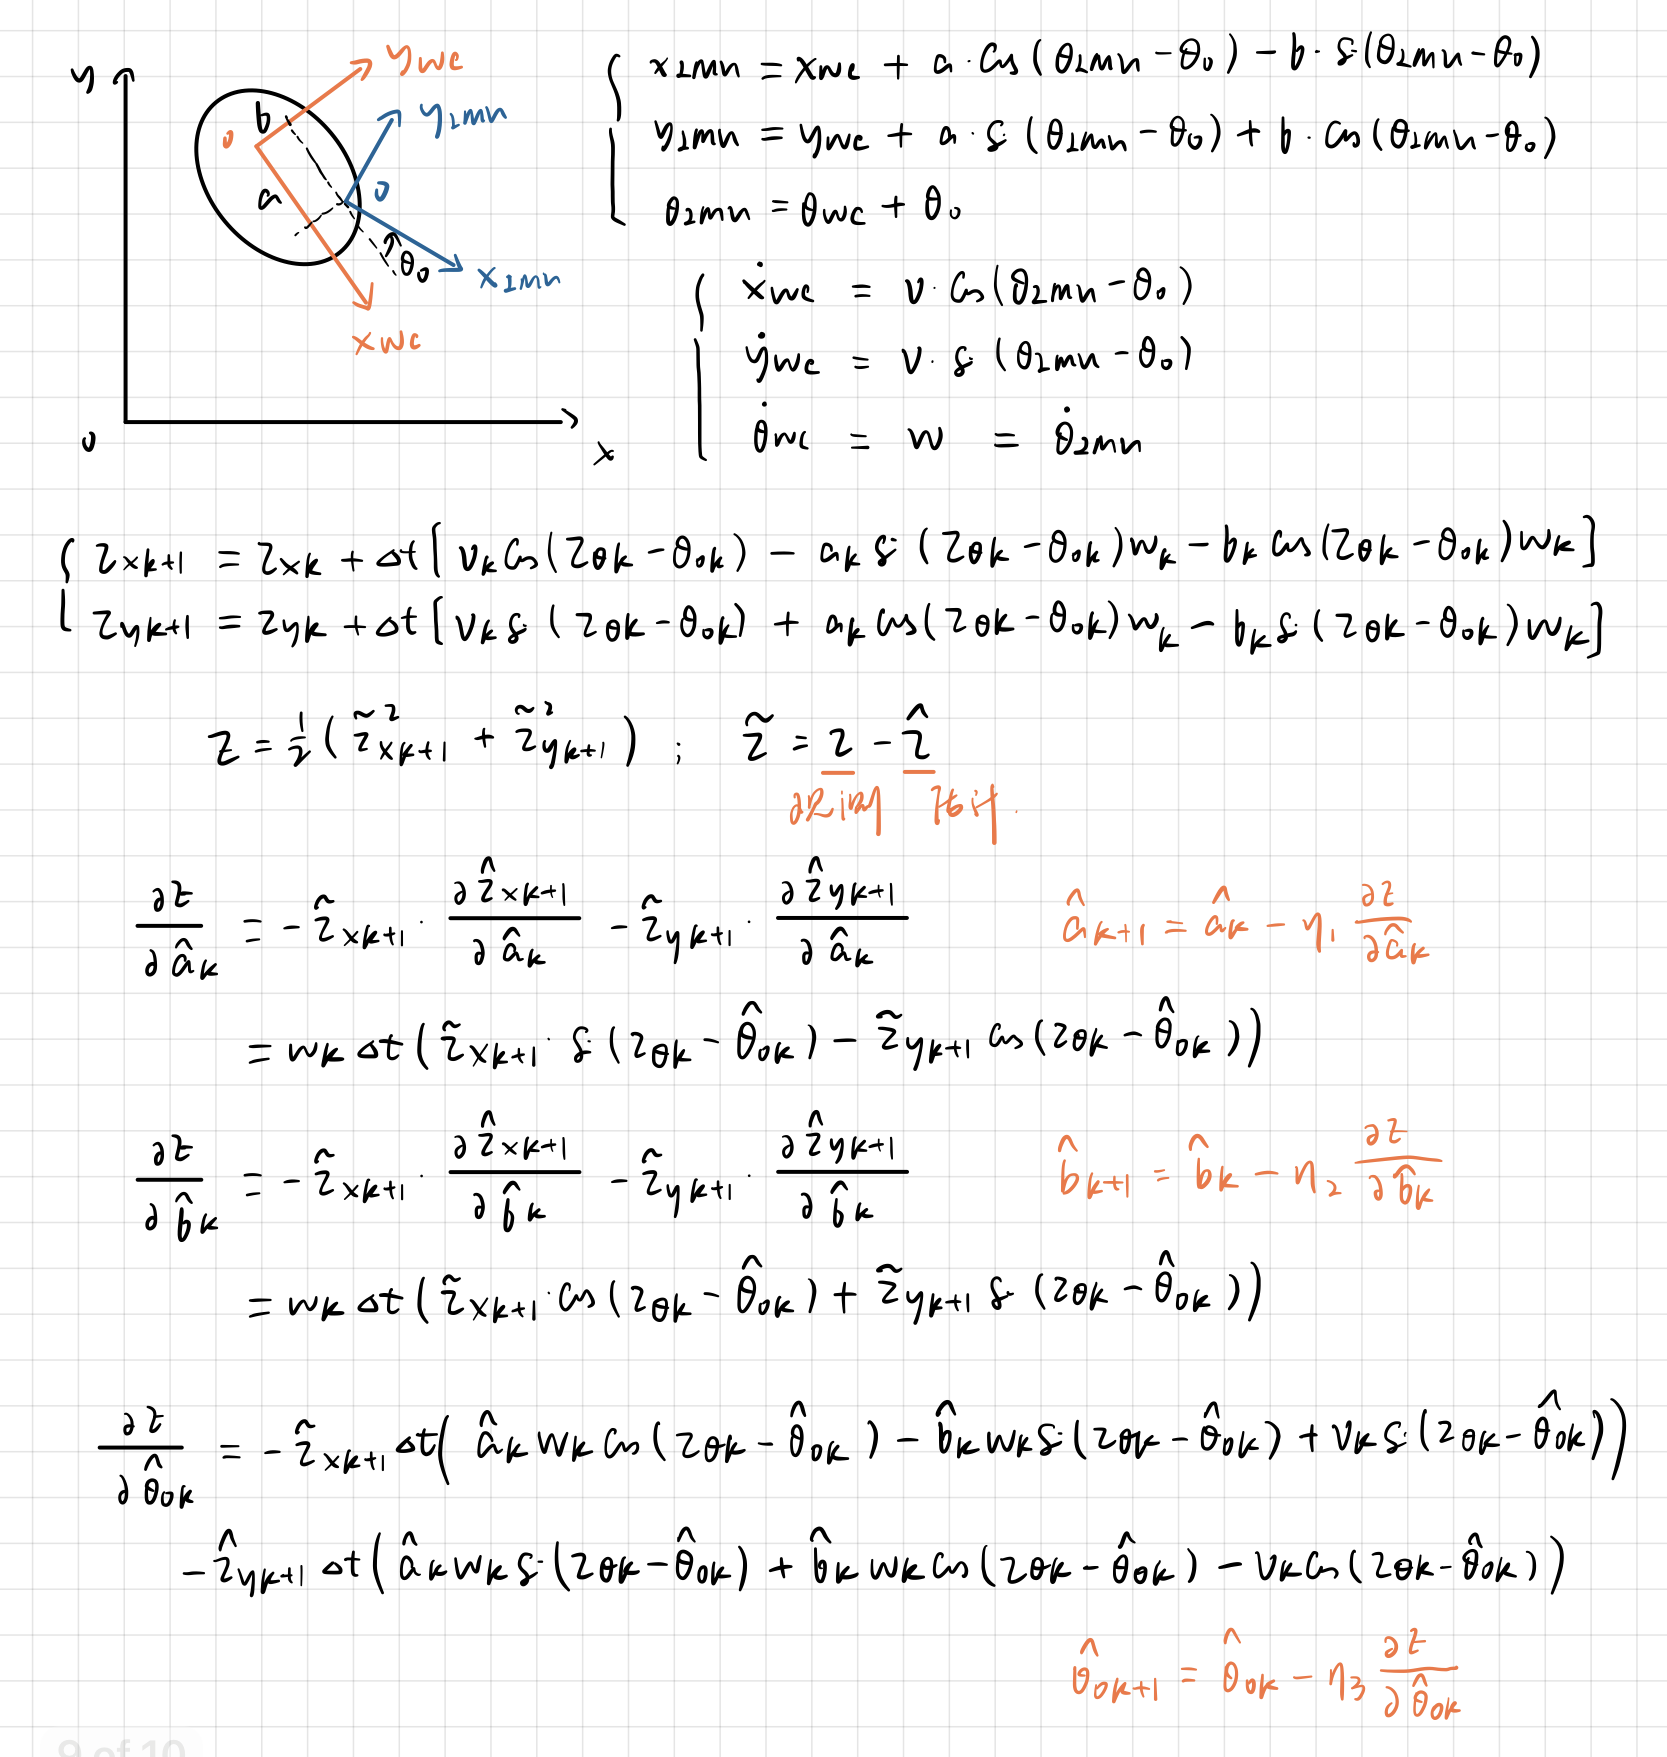 y
y_wc
b
y_2mn
o
a
o
θ₀
x_2mn
x_wc
o
x
x_2mn = x_wc + a · cs(θ_2mn − θ₀) − b · s(θ_2mn − θ₀)
y_2mn = y_wc + a · s(θ_2mn − θ₀) + b · cs(θ_2mn − θ₀)
θ_2mn = θ_wc + θ₀
ẋ_wc = v · cs(θ_2mn − θ₀)
ẏ_wc = v · s(θ_2mn − θ₀)
θ̇_wc = w = θ̇_2mn
z_xk+1 = z_xk + Δt[v_k cs(z_θk − θ_0k) − a_k s(z_θk − θ_0k)w_k − b_k cs(z_θk − θ_0k)w_k]
z_yk+1 = z_yk + Δt[v_k s(z_θk − θ_0k) + a_k cs(z_θk − θ_0k)w_k − b_k s(z_θk − θ_0k)w_k]
Z = ½(z̃²_xk+1 + z̃²_yk+1) ; z̃ = z − ẑ
观测 估计.
∂Z/∂â_k = −z̃_xk+1 · ∂ẑ_xk+1/∂â_k − z̃_yk+1 · ∂ẑ_yk+1/∂â_k â_k+1 = â_k − η₁ ∂Z/∂â_k
= w_k Δt(z̃_xk+1 · s(z_θk − θ̂_0k) − z̃_yk+1 cs(z_θk − θ̂_0k))
∂Z/∂b̂_k = −z̃_xk+1 · ∂ẑ_xk+1/∂b̂_k − z̃_yk+1 · ∂ẑ_yk+1/∂b̂_k b̂_k+1 = b̂_k − η₂ ∂Z/∂b̂_k
= w_k Δt(z̃_xk+1 · cs(z_θk − θ̂_0k) + z̃_yk+1 s(z_θk − θ̂_0k))
∂Z/∂θ̂_0k = −z̃_xk+1 Δt(â_k w_k cs(z_θk − θ̂_0k) − b̂_k w_k s(z_θk − θ̂_0k) + v_k s(z_θk − θ̂_0k))
−ẑ_yk+1 Δt(â_k w_k s(z_θk − θ̂_0k) + b̂_k w_k cs(z_θk − θ̂_0k) − v_k cs(z_θk − θ̂_0k))
θ̂_0k+1 = θ̂_0k − η₃ ∂Z/∂θ̂_0k
9 of 10